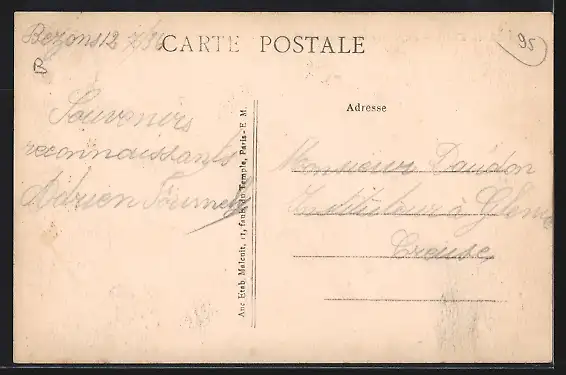 Bezons 12 7/36
CARTE POSTALE
95
B
Adresse
Souvenirs
reconnaissants
Adrien
Monsieur Daudon
Instituteur à Glénic
Creuse
Anc Etab. Malcuit, 11, faub. du Temple, Paris.-E. M.